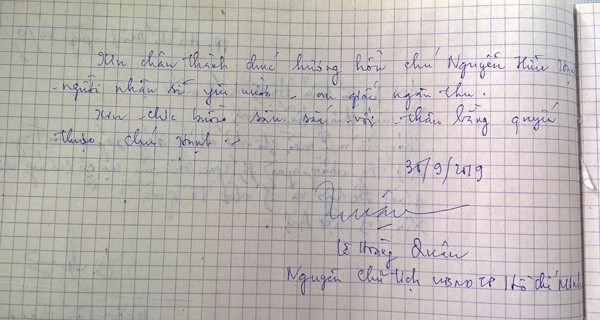 Xin chân thành chúc hương hồn chú Nguyễn Hữu Hạnh
- người nhân sĩ yêu nước - an giấc ngàn thu.
Xin chia buồn sâu sắc với thân bằng quyến
thuộc chú Hạnh.
30/9/2019
Quân
Lê Hoàng Quân
Nguyên Chủ tịch UBND TP Hồ Chí Minh